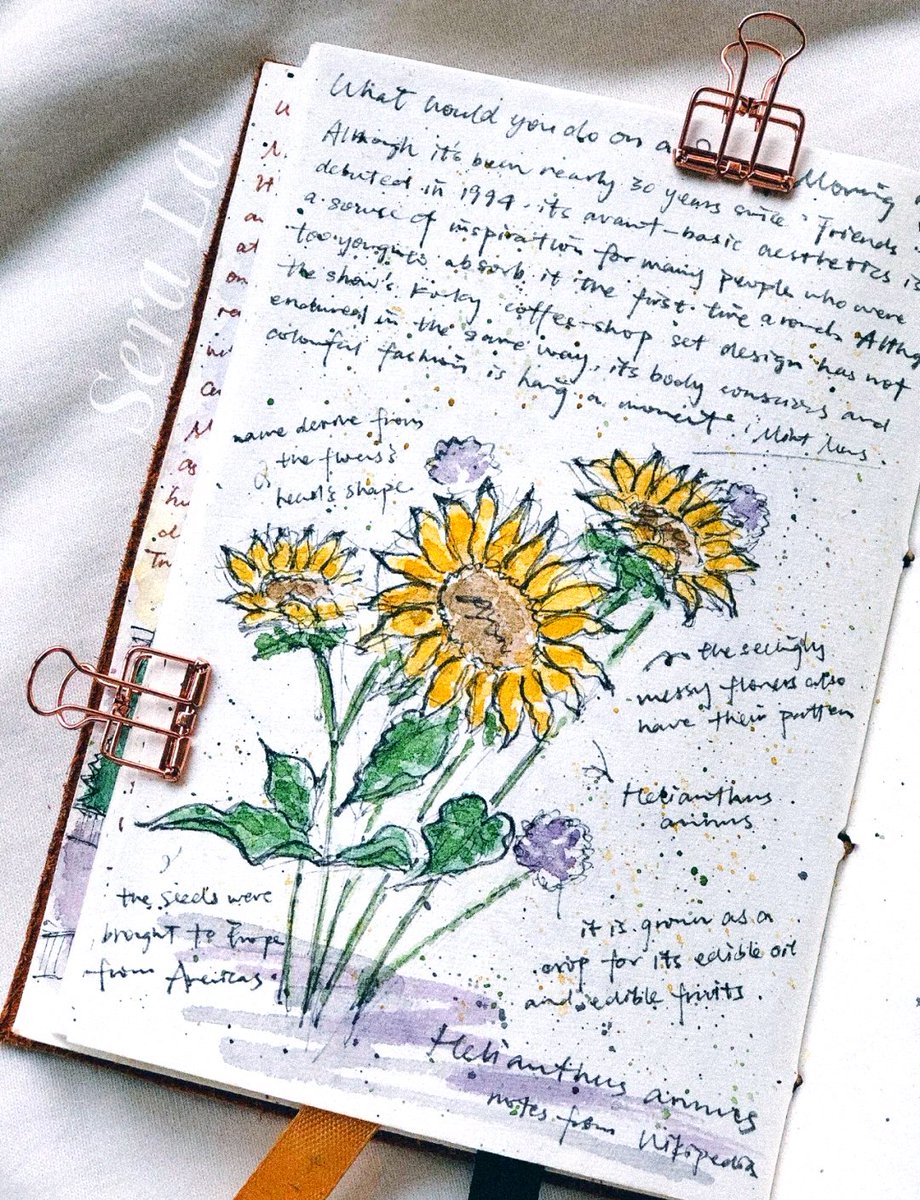 What would you do on a Morning
Although it's been nearly 30 years since "Friends
debuted in 1994, its avant-basic aesthetics is
a source of inspiration for many people who were
too young to absorb it the first time around. Althg
the show's kooky coffee-shop set design has not
endured in the same way, its body conscious and
colourful fashion is having a moment.
name derive from
the flower's
head's shape
the seeingly
messy flowers also
have their pattern
Helianthus
annus
the seeds were
brought to Erope
from Americas.
it is grown as a
crop for its edible oil
and edible fruits.
Helianthus annus
notes from Wikipedia
Sera La